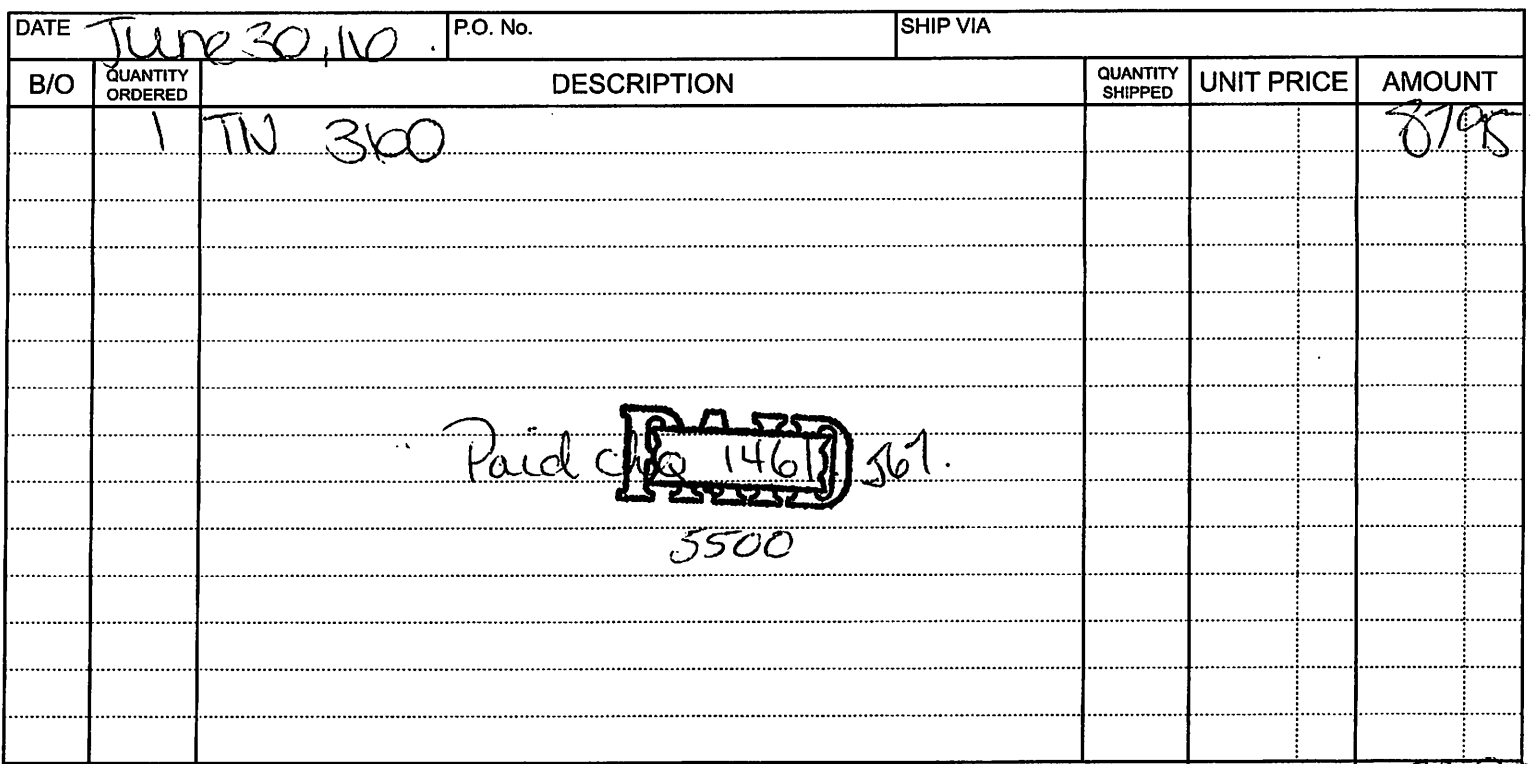 DATE June 30, 16 . P.O. No. SHIP VIA
B/O QUANTITY ORDERED DESCRIPTION QUANTITY SHIPPED UNIT PRICE AMOUNT
1 TN 360 8795
PAID
Paid chq 1461
5500